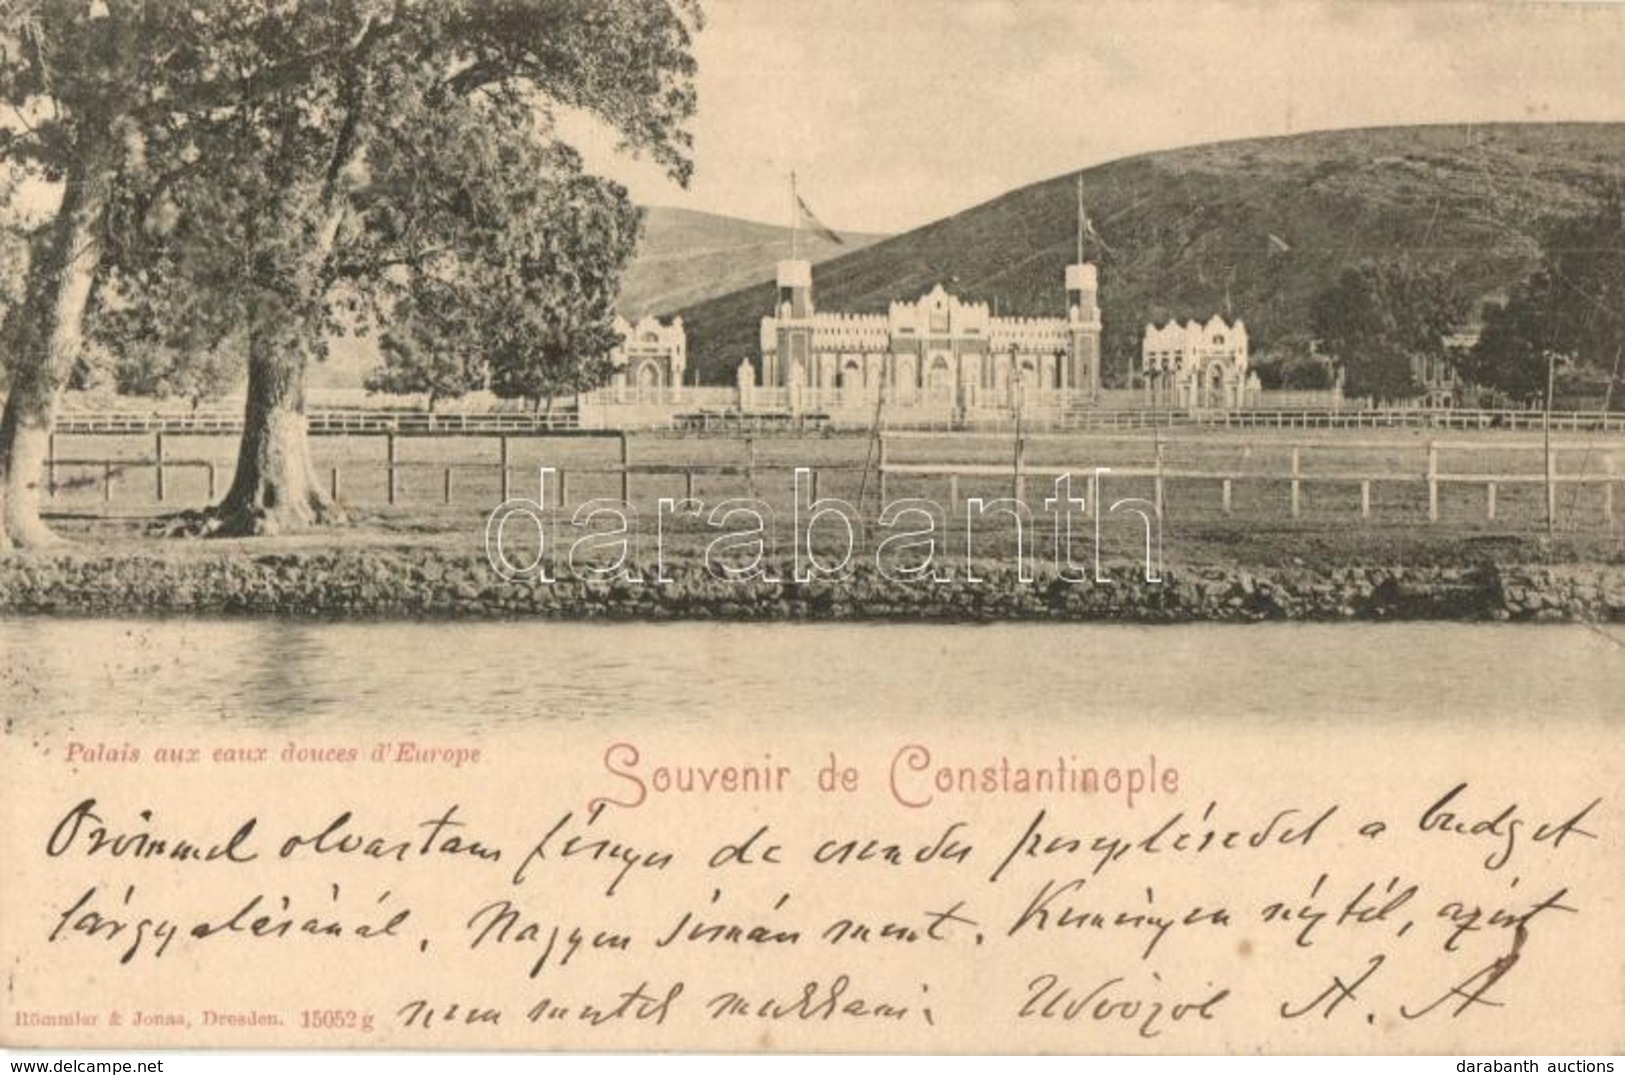 darabanth
Palais aux eaux douces d'Europe
Souvenir de Constantinople
Örömmel olvastam fényes de csendes szereplésedet a budget
tárgyalásánál. Nagyon simán ment. Keményen néztél, azért
nem mertek mukkani. Üdvözöl A. A
Römmler & Jonas, Dresden. 15052 g
www.darabanth.com
darabanth auctions